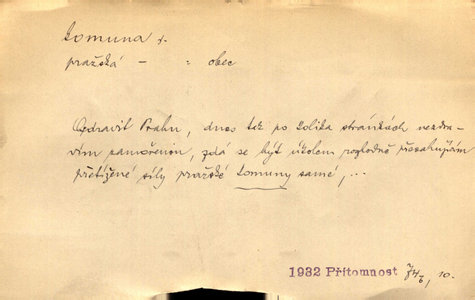 komuna f.
pražská - : obec
Ozdravit Prahu, dnes tak po kolika stránkách nezdra-
vím zamořenou, zdá se být úkolem rozhodně přesahujícím
přetížené síly pražské komuny samé, ...
1932 Přítomnost 10.